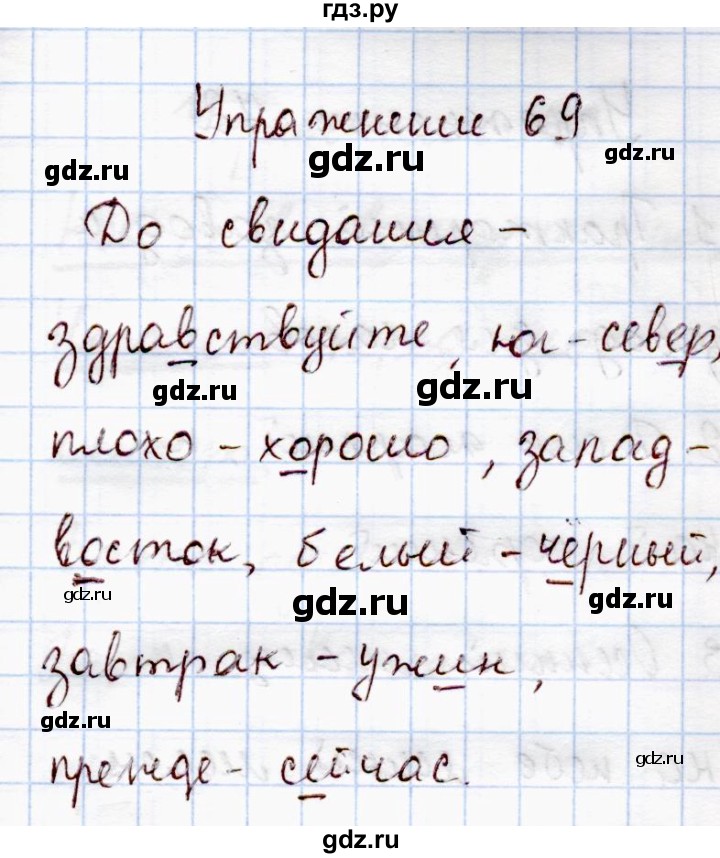 гдз.ру
Упражнение 69
gdz.ru
gdz.ru
gdz.ru
До свидания -
здравствуйте, юг - север,
gdz.ru
gdz.ru
плохо - хорошо, запад -
восток, белый - чёрный,
gdz.ru
gdz.ru
gdz.ru
завтрак - ужин,
gdz.ru
прежде - сейчас.
gdz.ru
gdz.ru